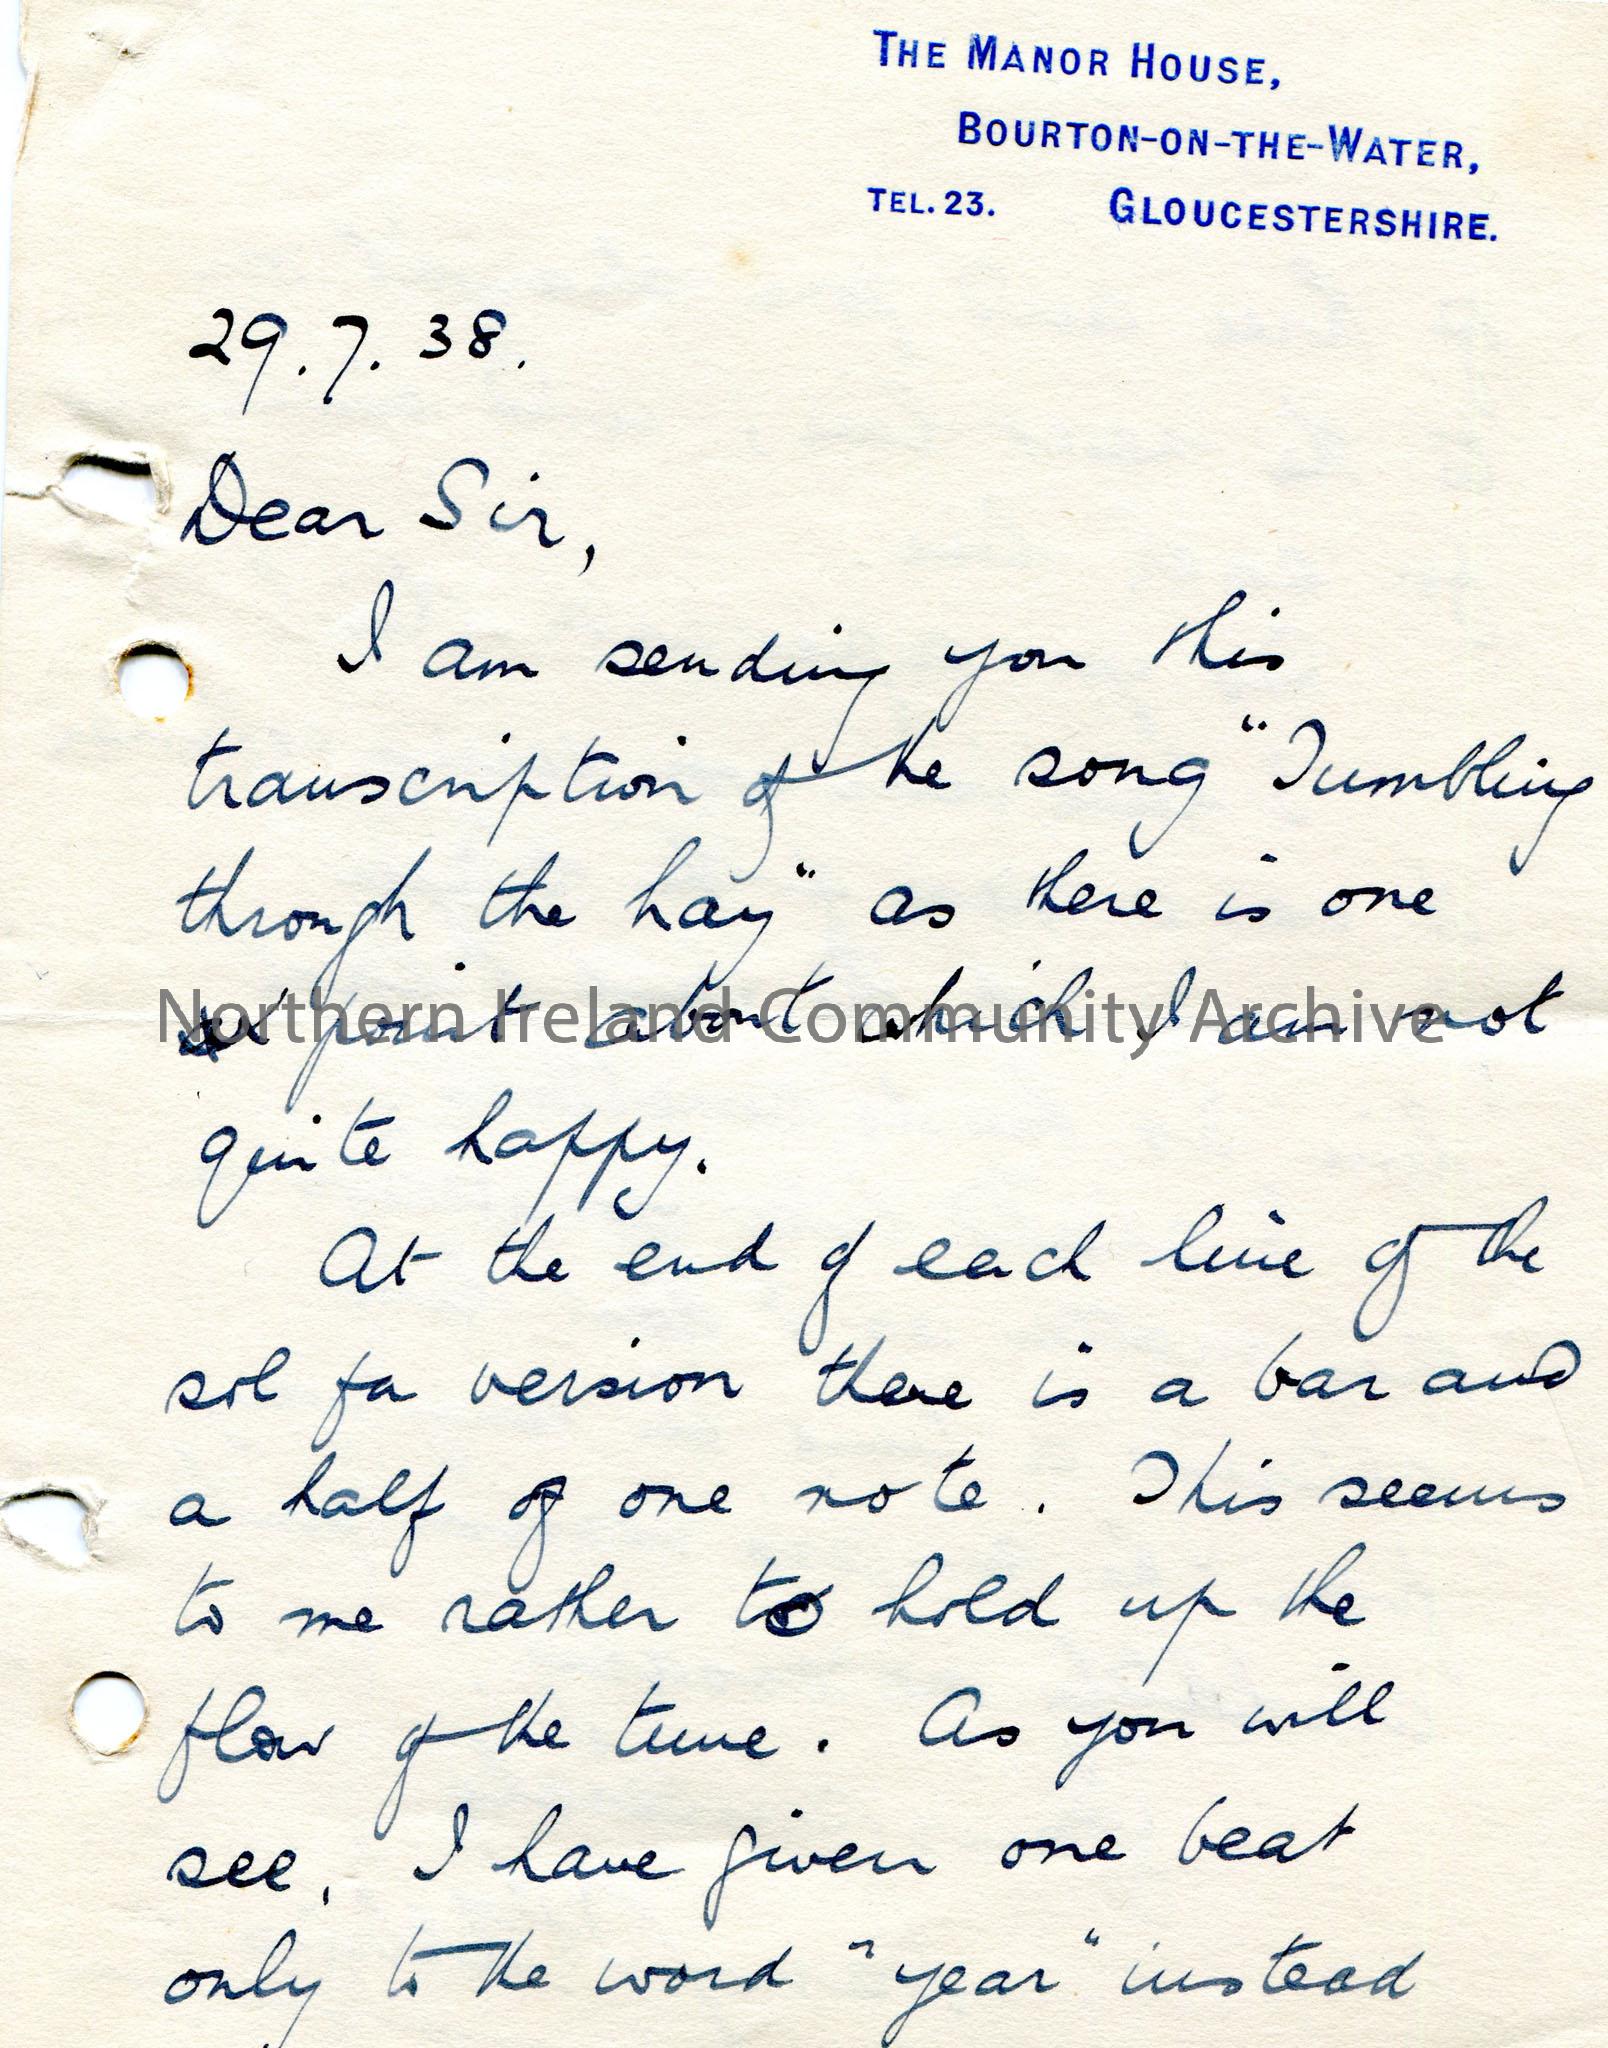 THE MANOR HOUSE,
BOURTON-ON-THE-WATER,
TEL. 23. GLOUCESTERSHIRE.
29.7.38.
Dear Sir,
I am sending you this
transcription of the song "Tumbling
through the hay" as there is one
point about which I am not
Northern Ireland Community Archive
quite happy.
At the end of each line of the
sol fa version there is a bar and
a half of one note. This seems
to me rather to hold up the
flow of the tune. As you will
see, I have given one beat
only to the word "year" instead